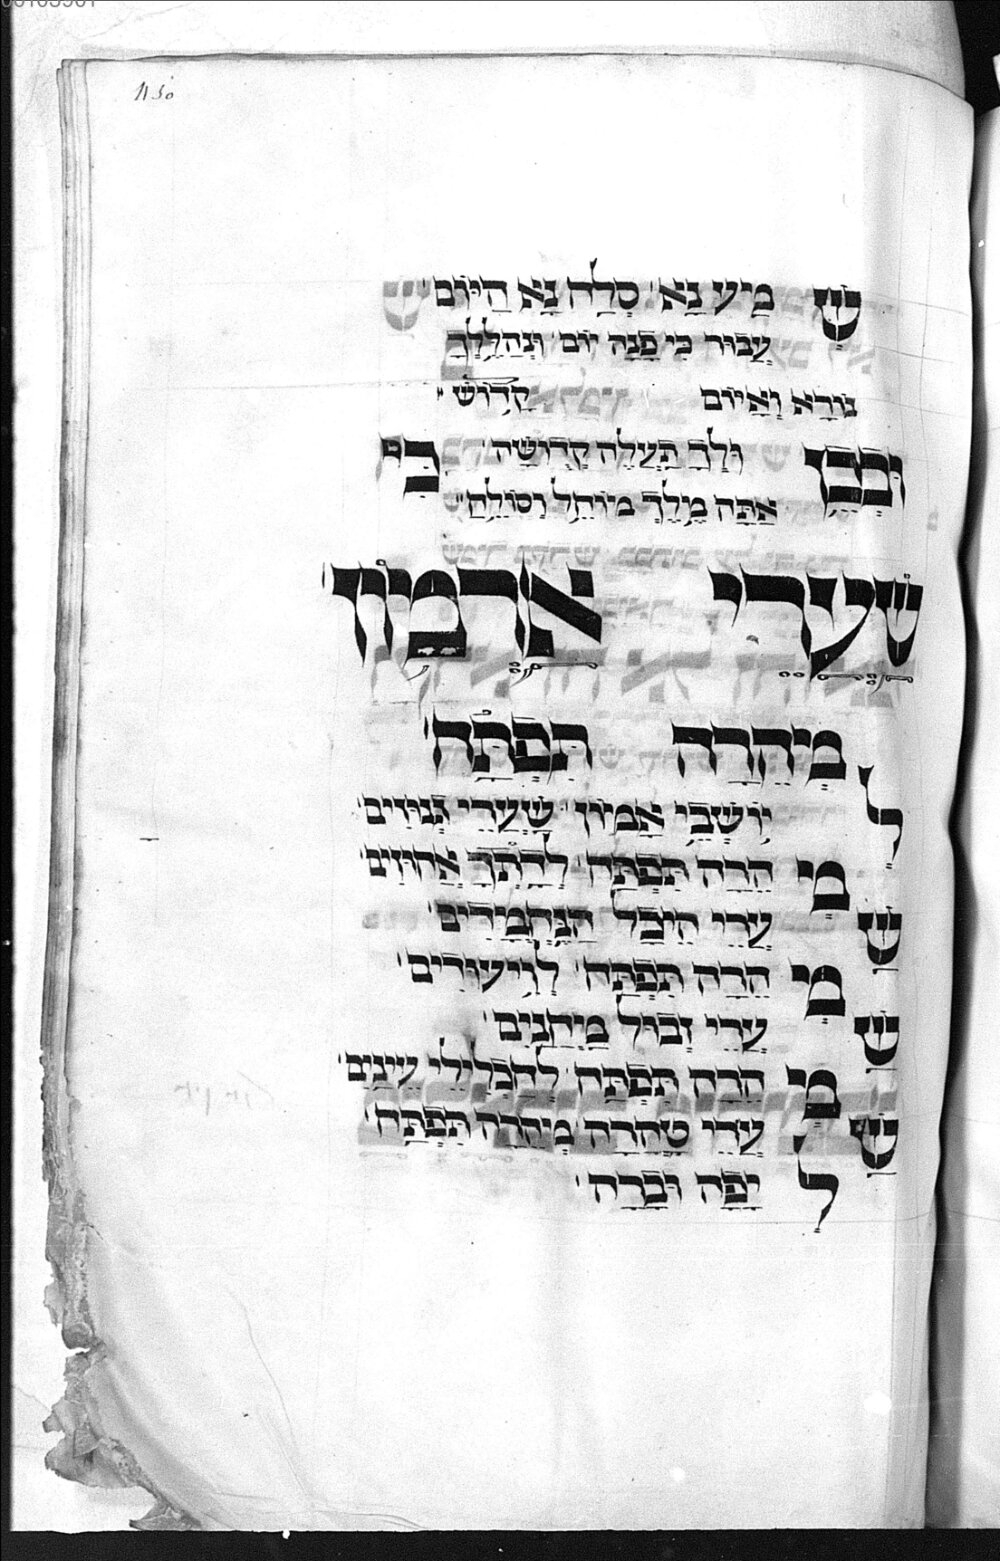 שְׁמַע נָא סְלַח נָא הַיּוֹם
עֲבוּר כִּי פָנָה יוֹם וּנְהַלֶּלְךָ
נוֹרָא וְאָיוֹם קָדוֹשׁ
וּבְכֵן וּלְךָ תַעֲלֶה קְדוּשָׁה כִּי
אַתָּה מֶלֶךְ מוֹחֵל וְסוֹלֵחַ
שערי ארמון
מְהֵרָה תִּפְתַּח
לְיוֹשְׁבֵי אָמוֹן שַׁעֲרֵי גְנוּזִים
מְהֵרָה תִּפְתַּח לְדָתְךָ אֲחוּזִים
שַׁעֲרֵי הֵיכָל הַנֶּחֱמָדִים
מְהֵרָה תִּפְתַּח
שַׁעֲרֵי זְבוּל מַחֲנַיִם
מְהֵרָה תִּפְתַּח לְחַכְלִילֵי עֵינַיִם
שַׁעֲרֵי טָהֳרָה מְהֵרָה תִּפְתַּח
לְיָפָה וּבָרָה